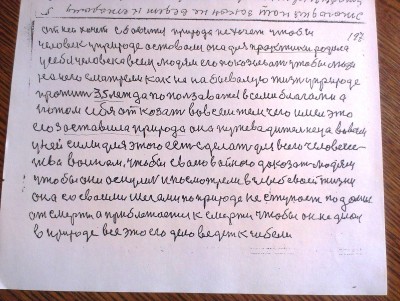 197
от неи хочет свои эти природа не хочет чтобы
человек природе оставался она для практики родила
у себя человека всем людям его показывать чтобы люди
на него смотрели как не на бывалую жизнь в природе
прожить 35 лет да попользоваться всеми благами а
потом себя отказать во всем том чего имел это
его заставила природа она путеводителница во всем
у ней силы для этого есть сделать для всего человечес
тва воином, чтобы своею войною доказать людям
чтобы они оснулись и посмотрели в глыб своей жизни
она со своими шагами по природе не ступает подальше
от смерти а приближается к смерти чтобы он не делал
в природе все это его дело ведет к гибели